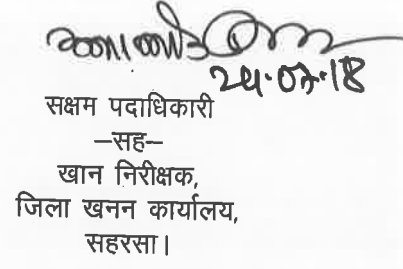 24.07.18
सक्षम पदाधिकारी
–सह–
खान निरीक्षक,
जिला खनन कार्यालय,
सहरसा।